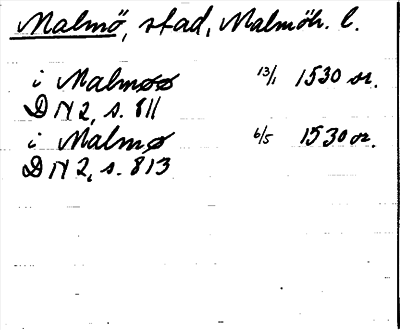 Malmö, stad, Malmöh. l.
i Malmøø 13/1 1530 or.
D N 2, s. 811
i Malmø 6/5 1530 or.
D N 2, s. 813